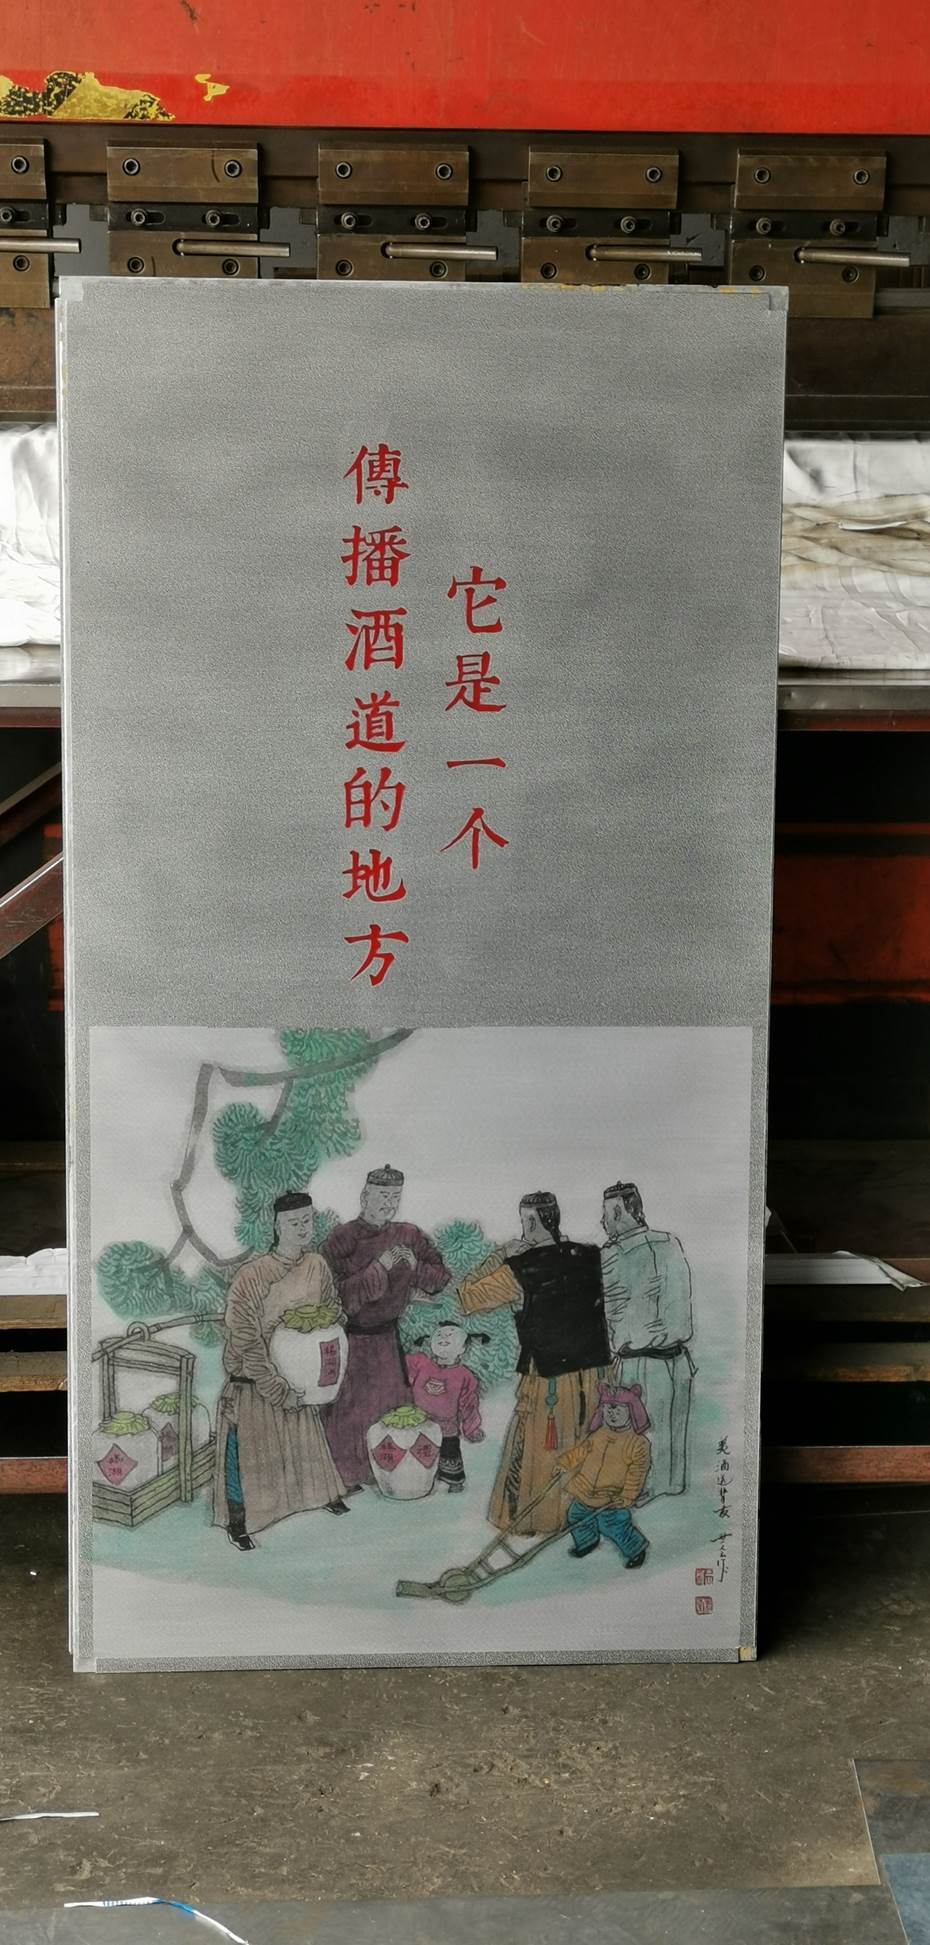 它是一个
傳播酒道的地方
美酒送好友